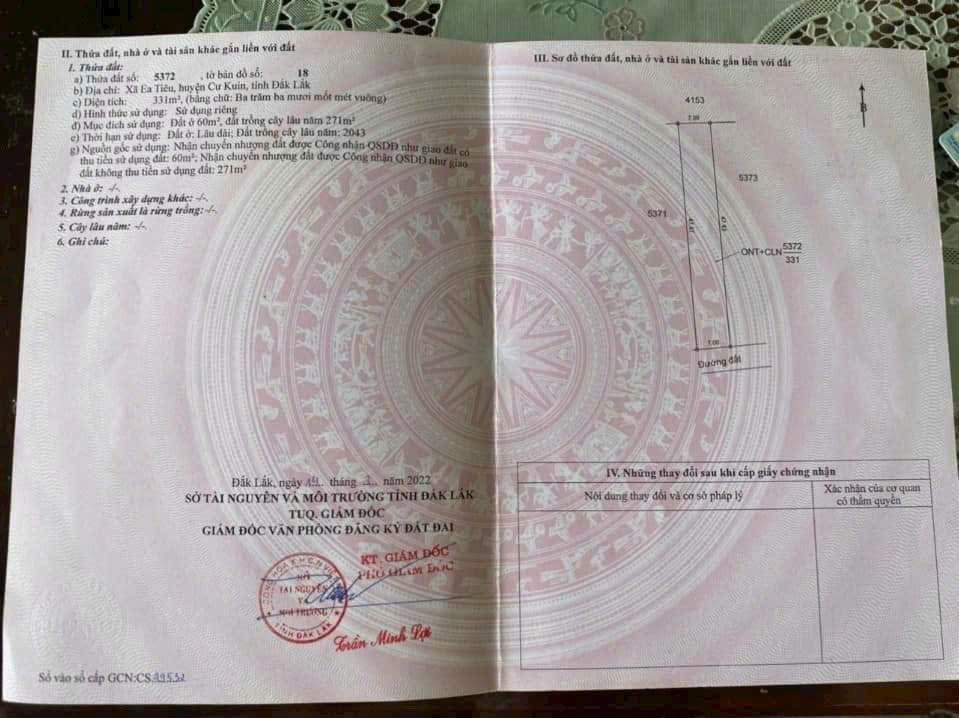 II. Thửa đất, nhà ở và tài sản khác gắn liền với đất
1. Thửa đất:
a) Thửa đất số: 5372 , tờ bản đồ số: 18
b) Địa chỉ: Xã Ea Tiêu, huyện Cư Kuin, tỉnh Đắk Lắk
c) Diện tích: 331m², (bằng chữ: Ba trăm ba mươi mốt mét vuông)
d) Hình thức sử dụng: Sử dụng riêng
đ) Mục đích sử dụng: Đất ở 60m², đất trồng cây lâu năm 271m²
e) Thời hạn sử dụng: Đất ở: Lâu dài; Đất trồng cây lâu năm: 2043
g) Nguồn gốc sử dụng: Nhận chuyển nhượng đất được Công nhận QSDĐ như giao đất có
thu tiền sử dụng đất: 60m²; Nhận chuyển nhượng đất được Công nhận QSDĐ như giao
đất không thu tiền sử dụng đất: 271m²
2. Nhà ở: -/-.
3. Công trình xây dựng khác: -/-.
4. Rừng sản xuất là rừng trồng:-/-.
5. Cây lâu năm: -/-.
6. Ghi chú:
Đắk Lắk, ngày tháng năm 2022
SỞ TÀI NGUYÊN VÀ MÔI TRƯỜNG TỈNH ĐẮK LẮK
TUQ. GIÁM ĐỐC
GIÁM ĐỐC VĂN PHÒNG ĐĂNG KÝ ĐẤT ĐAI
KT. GIÁM ĐỐC
PHÓ GIÁM ĐỐC
SỞ
TÀI NGUYÊN
VÀ
MÔI TRƯỜNG
TỈNH ĐẮK LẮK
Trần Minh Lợi
Số vào sổ cấp GCN:CS
III. Sơ đồ thửa đất, nhà ở và tài sản khác gắn liền với đất
B
4153
7.00
5373
5371
ONT+CLN 5372
331
7.00
Đường đất
IV. Những thay đổi sau khi cấp giấy chứng nhận
Nội dung thay đổi và cơ sở pháp lý
Xác nhận của cơ quan
có thẩm quyền